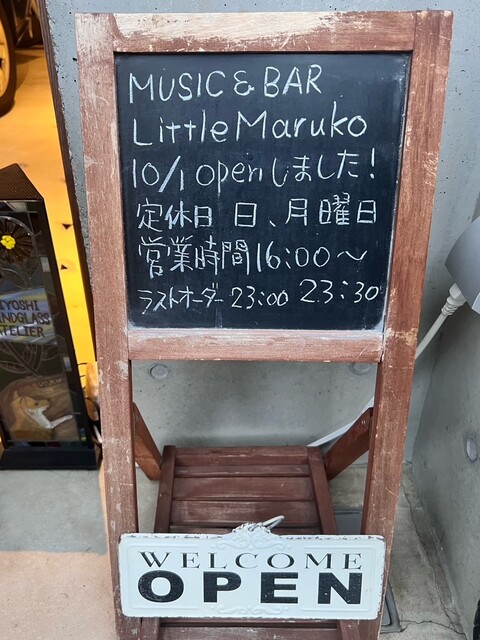 MUSIC & BAR
Little Maruko
10/1 openしました!
定休日 日、月曜日
営業時間16:00～
ラストオーダー 23:00 23:30
WELCOME
OPEN
ATELIER